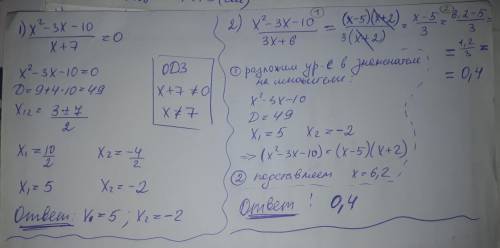 1) x²-3x-10 / x+7 = 0
x²-3x-10=0
D=9+4·10=49
x₁₂ = 3±7 / 2
x₁ = 10/2 x₂ = -4/2
x₁=5 x₂=-2
Ответ: x₁=5; x₂=-2
ОДЗ
x+7≠0
x≠7
2) x²-3x-10 / 3x+6 ① = (x-5)(x+2) / 3(x+2) = x-5 / 3 ② = 6,2-5 / 3
= 1,2 / 3 =
= 0,4
① разложим ур-е в знаменателе
на множители:
x²-3x-10
D=49
x₁=5 x₂=-2
⇒ (x²-3x-10)=(x-5)(x+2)
② подставляем x=6,2
Ответ: 0,4